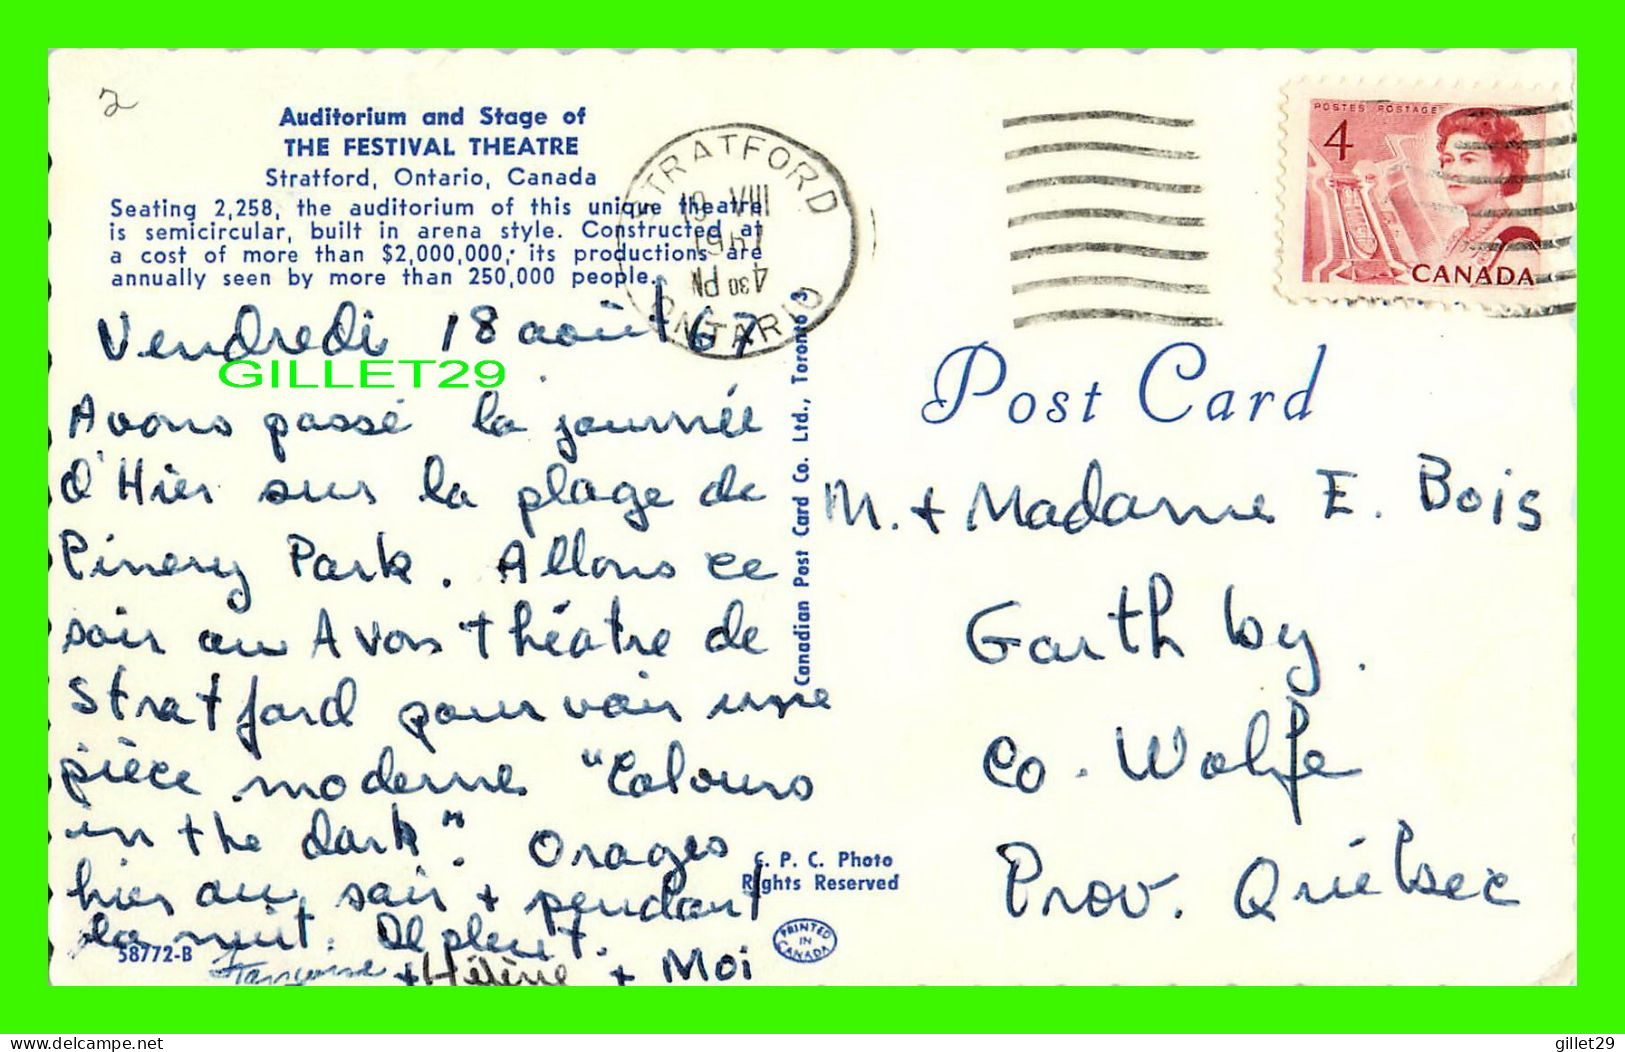 2
Auditorium and Stage of
THE FESTIVAL THEATRE
Stratford, Ontario, Canada
Seating 2,258, the auditorium of this unique theatre
is semicircular, built in arena style. Constructed at
a cost of more than $2,000,000, its productions are
annually seen by more than 250,000 people.
STRATFORD
VIII
1967
4 30 PM
ONTARIO
POSTES POSTAGE
4
CANADA
Vendredi 18 août 67
GILLET29
Avons passé la journée
d'Hier sur la plage de
Pinery Park. Allons ce
soir au Avon théatre de
Stratford pour voir une
pièce moderne "Colours
in the dark". Orages
hier au soir + pendant
la nuit. Il pleut.
Françoise + Hélène + Moi
58772-B
Canadian Post Card Co. Ltd., Toronto 3
C. P. C. Photo
Rights Reserved
PRINTED
IN
CANADA
Post Card
M. + Madame E. Bois
Garthby.
Co. Wolfe
Prov. Québec
www.delcampe.net
gillet29